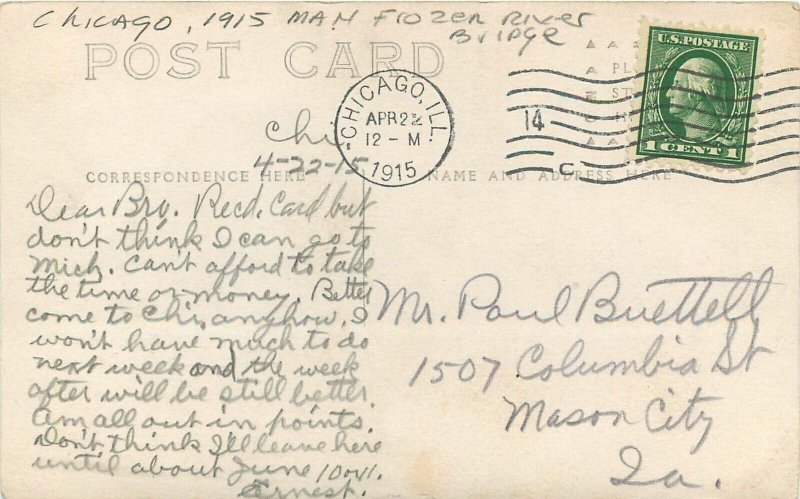 Chicago, 1915 Man Frozen River
Bridge
POST CARD
U.S. POSTAGE
1 CENT 1
CHICAGO, ILL.
APR 22
12 - M
1915
14
C
Chi
4-22-15
CORRESPONDENCE HERE
NAME AND ADDRESS HERE
Dear Bro. Recd. Card but
don't think I can go to
Mich. Can't afford to take
the time or money. Better
come to Chi. anyhow. I
won't have much to do
next week and the week
after will be still better.
Am all out in points.
Don't think I'll leave here
until about June 10 or 11.
Ernest.
Mr. Paul Buettell
1507 Columbia St
Mason City
Ia.